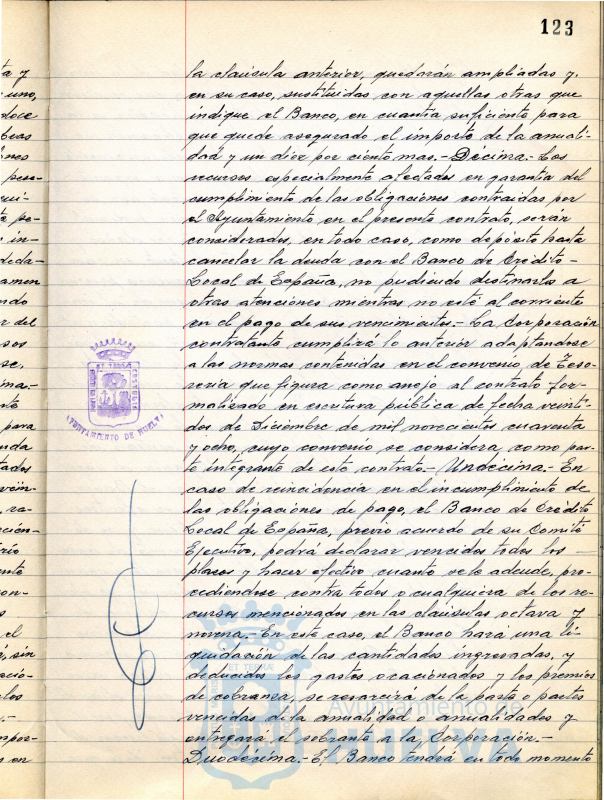 123
la claúsula anterior, quedarán ampliadas y,
en su caso, sustituidas con aquellas otras que
indique el Banco, en cuantía suficiente para
que quede asegurado el importe de la anuali-
dad y un diez por ciento mas.- Décima.- Los
recursos especialmente afectados en garantía del
cumplimiento de las obligaciones contraidas por
el Ayuntamiento en el presente contrato, serán
considerados, en todo caso, como depósito hasta
cancelar la deuda con el Banco de Crédito-
Local de España, no pudiendo destinarlos a
otras atenciones mientras no esté al corriente
en el pago de sus vencimientos.- La Corporación
contratante cumplirá lo anterior adaptandose
a las normas contenidas en el convenio de Teso-
rería que figura como anejo al contrato for-
malizado en escritura pública de fecha veinti-
dos de Diciembre de mil novecientos cuarenta
y ocho, cuyo convenio se considera como par-
te integrante de este contrato.- Undécima.- En
caso de reincidencia en el incumplimiento de
las obligaciones de pago, el Banco de Crédito
Local de España, previo acuerdo de su Comité
Ejecutivo, podrá declarar vencidos todos los -
plazos y hacer efectivo cuanto se le adeude, pro-
cediendose contra todos o cualquiera de los re-
cursos mencionados en las claúsulas octava y
novena.- En este caso, el Banco hará una li-
quidación de las cantidades ingresadas, y
deducidos los gastos ocacionados y los premios
de cobranza, se resarcirá de la parte o partes
vencidas de la anualidad o anualidades y
entregará el sobrante a la Corporación.-
Duodécima.- El Banco tendrá en todo momento
AYUNTAMIENTO DE HUELVA
Ayuntamiento de
HUELVA